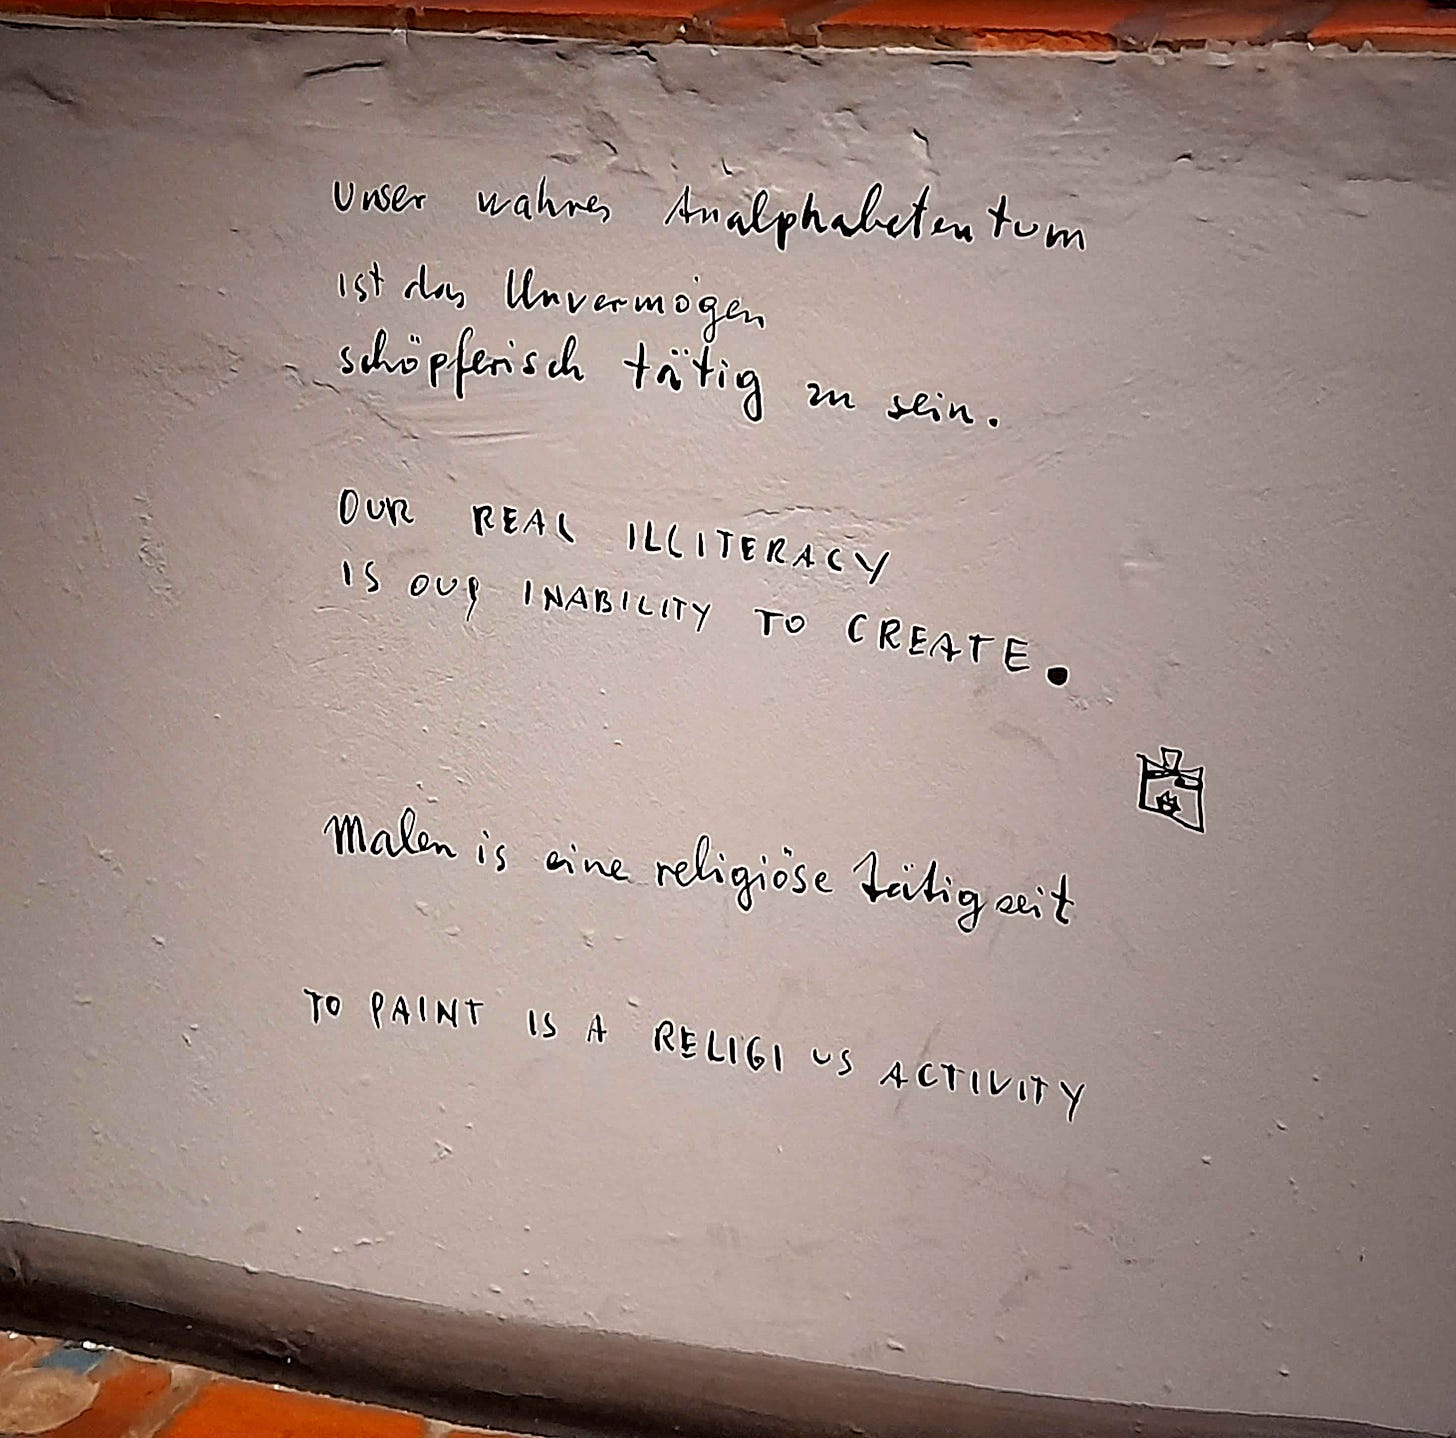 Unser wahres Analphabetentum
ist das Unvermögen
schöpferisch tätig zu sein.
OUR REAL ILLITERACY
IS OUR INABILITY TO CREATE.
Malen is eine religiöse tätigkeit
TO PAINT IS A RELIGI US ACTIVITY